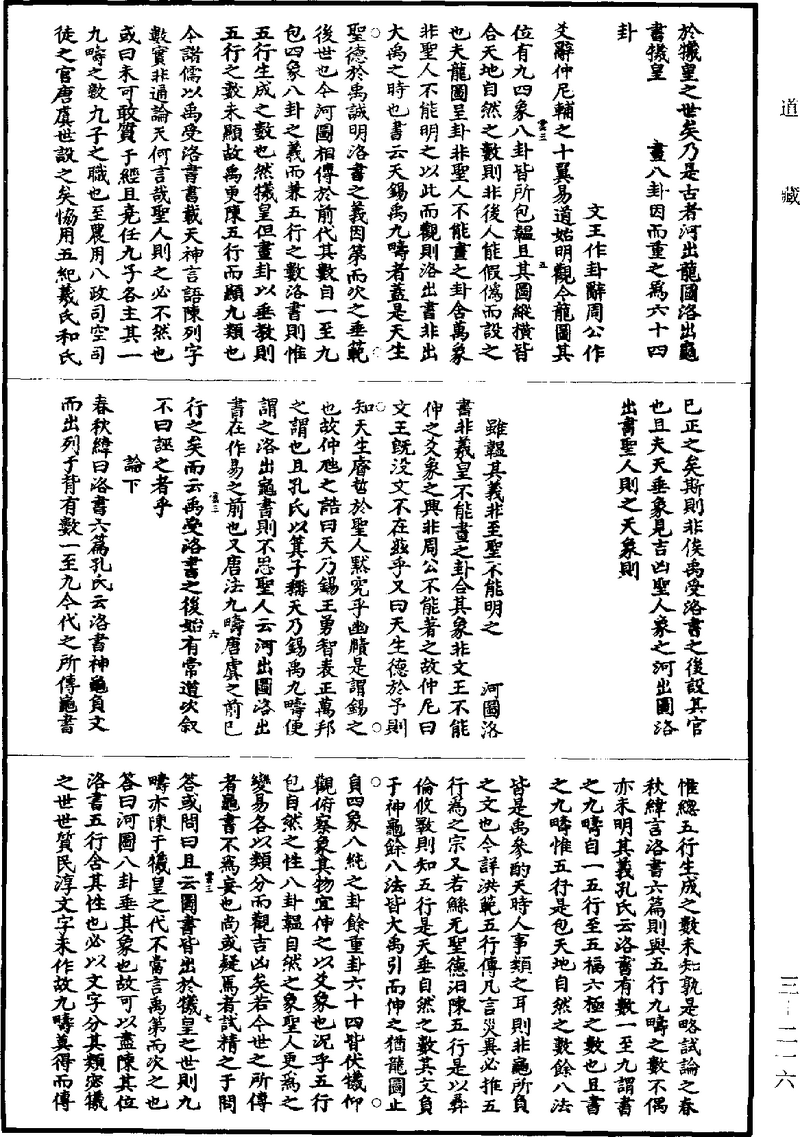 道藏
三一二一六
於犧皇之世矣乃是古者河出龍圖洛出龜
書犧皇　畫八卦因而重之為六十四
卦
文王作卦辭周公作
爻辭仲尼輔之十翼易道始明觀今龍圖其
位有九四象八卦皆所包韞且其圖縱橫皆
合天地自然之數則非後人能假偽而設之
也夫龍圖呈卦非聖人不能畫之卦含萬象
非聖人不能明之以此而觀則洛出書非出
大禹之時也書云天錫禹九疇者蓋是天生
聖德於禹誠明洛書之義因第而次之垂範
後世也今河圖相傳於前代其數自一至九
包四象八卦之義而兼五行之數洛書則惟
五行生成之數也然犧皇但畫卦以垂教則
五行之數未顯故禹更陳五行而顯九類也
今諸儒以禹受洛書書載天神言語陳列字
數實非通論天何言哉聖人則之必不然也
或曰未可敢質于經且堯任九子各主其一
九疇之數九子之職也至農用八政司空司
徒之官唐虞世設之矣協用五紀羲氏和氏
已正之矣斯則非俟禹受洛書之後設其官
也且夫天垂象見吉凶聖人象之河出圖洛
出書聖人則之天象則
雖韞其義非至聖不能明之　河圖洛
書非羲皇不能畫之卦合其象非文王不能
伸之爻象之興非周公不能著之故仲尼曰
文王既没文不在茲乎又曰天生德於予則
知天生睿哲於聖人默究乎幽賾是謂錫之
也故仲虺之誥曰天乃錫王勇智表正萬邦
之謂也且孔氏以箕子稱天乃錫禹九疇便
謂之洛出龜書則不思聖人云河出圖洛出
書在作易之前也又唐法九疇唐虞之前已
行之矣而云禹受洛書之後始有常道次叙
不曰誣之者乎
論下
春秋緯曰洛書六篇孔氏云洛書神龜負文
而出列于背有數一至九今代之所傳龜書
惟緫五行生成之數未知孰是略試論之春
秋緯言洛書六篇則與五行九疇之數不偶
亦未明其義孔氏云洛書有數一至九謂書
之九疇自一五行至五福六極之數也且書
之九疇惟五行是包天地自然之數餘八法
皆是禹參酌天時人事類之耳則非龜所負
之文也今詳洪範五行傳凡言災異必推五
行為之宗又若鯀无聖德汨陳五行是以彝
倫攸斁則知五行是天垂自然之數其文負
于神龜餘八法皆大禹引而伸之猶龍圖止
負四象八純之卦餘重卦六十四皆伏犧仰
觀俯察象其物宜伸之以爻象也況乎五行
包自然之性八卦韞自然之象聖人更為之
變易各以類分而觀吉凶矣若今世之所傳
者龜書不為妄也尚或疑焉者試精之于問
答或問曰且云圖書皆出於犧皇之世則九
疇亦陳于犧皇之代不當言禹第而次之也
答曰河圖八卦垂其象也故可以盡陳其位
洛書五行含其性也必以文字分其類宓犧
之世世質民淳文字未作故九疇莫得而傳